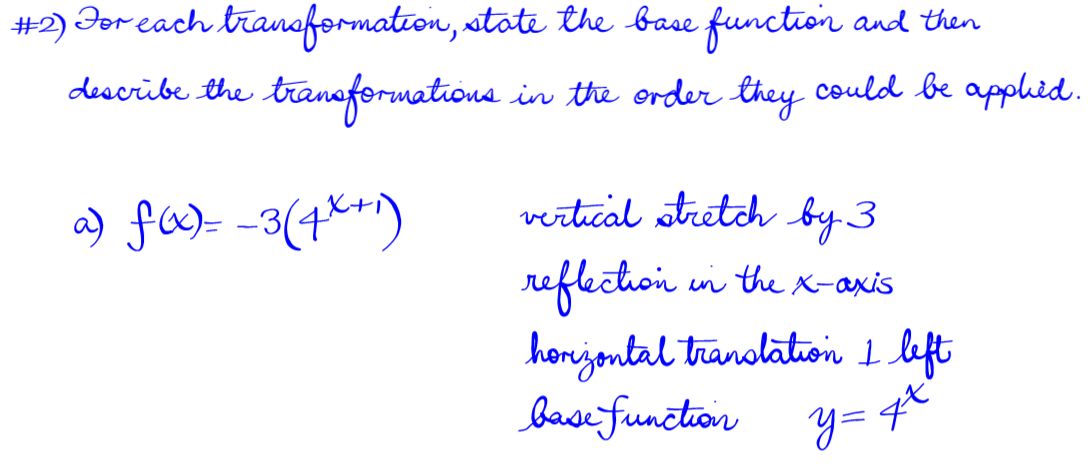 #2) For each transformation, state the base function and then
describe the transformations in the order they could be applied.
a) f(x)= -3(4^{x+1})
vertical stretch by 3
reflection in the x-axis
horizontal translation 1 left
base function y= 4^x